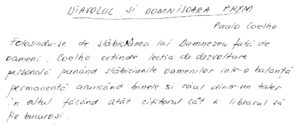 DIAVOLUL SI DOMNISOARA PRYM
Paulo Coelho
Folosindu-se de slăbiciunea lui Dumnezeu față de
oameni, Coelho extinde lecția de dezvoltare
personală punând slăbiciunile oamenilor într-o balanță
permanentă aruncând binele si răul dintr-un taler
în altul făcând atât cititorul cât si librarul să
fie bucuroși.